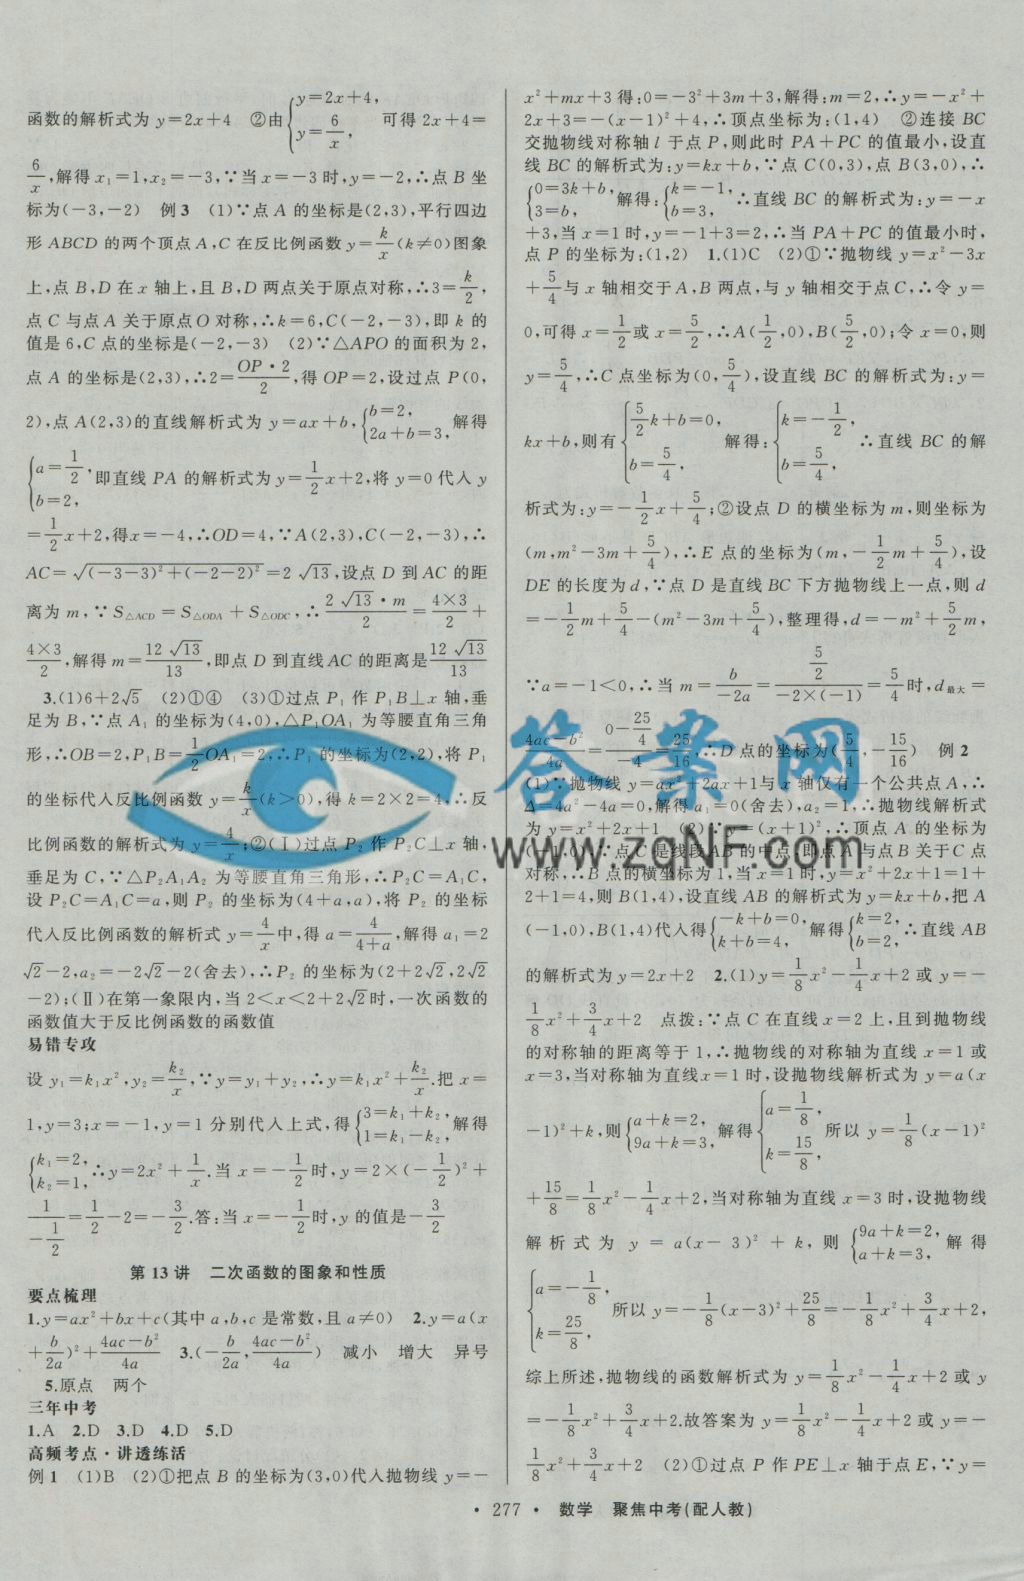 函数的解析式为 y=2x+4　②由{y=2x+4, y=6/x, 可得 2x+4=
6/x,解得 x₁=1,x₂=-3,∵当 x=-3 时,y=-2,∴点 B 坐
标为(-3,-2)　例 3　(1)∵点 A 的坐标是(2,3),平行四边
形 ABCD 的两个顶点 A,C 在反比例函数 y=k/x(k≠0)图象
上,点 B,D 在 x 轴上,且 B,D 两点关于原点对称,∴3=k/2,
点 C 与点 A 关于原点 O 对称,∴k=6,C(-2,-3),即 k 的
值是 6,C 点的坐标是(-2,-3)　(2)∵△APO 的面积为 2,
点 A 的坐标是(2,3),∴2=OP·2/2,得 OP=2,设过点 P(0,
2),点 A(2,3)的直线解析式为 y=ax+b,{b=2, 2a+b=3, 解得
{a=1/2, b=2, 即直线 PA 的解析式为 y=1/2x+2,将 y=0 代入 y
=1/2x+2,得x=-4,∴OD=4,∵A(2,3),C(-2,-3),∴
AC=√((-3-3)²+(-2-2)²)=2√13,设点 D 到 AC 的距
离为 m,∵S△ACD=S△ODA+S△ODC,∴2√13·m/2=4×3/2+
4×3/2,解得 m=12√13/13,即点 D 到直线 AC 的距离是12√13/13
3.(1)6+2√5　(2)①④　(3)①过点 P₁ 作 P₁B⊥x 轴,垂
足为 B,∵点 A₁ 的坐标为(4,0),△P₁OA₁ 为等腰直角三角
形,∴OB=2,P₁B=1/2OA₁=2,∴P₁ 的坐标为(2,2),将 P₁
的坐标代入反比例函数 y=k/x(k>0),得 k=2×2=4,∴反
比例函数的解析式为 y=4/x;②(Ⅰ)过点 P₂ 作 P₂C⊥x 轴,
垂足为 C,∵△P₂A₁A₂ 为等腰直角三角形,∴P₂C=A₁C,
设 P₂C=A₁C=a,则 P₂ 的坐标为(4+a,a),将 P₂ 的坐标
代入反比例函数的解析式 y=4/x中,得 a=4/(4+a),解得 a₁=2
√2-2,a₂=-2√2-2(舍去),∴P₂ 的坐标为(2+2√2,2√2
-2);(Ⅱ)在第一象限内,当 2<x<2+2√2时,一次函数的
函数值大于反比例函数的函数值
易错专攻
设 y₁=k₁x²,y₂=k₂/x,∵y=y₁+y₂,∴y=k₁x²+k₂/x.把 x=
1,y=3;x=-1,y=1 分别代入上式,得{3=k₁+k₂, 1=k₁-k₂, 解得
{k₁=2, k₂=1, ∴y=2x²+1/x.当 x=-1/2时,y=2×(-1/2)²+
1/(-1/2)=1/2-2=-3/2.答:当 x=-1/2时,y 的值是-3/2
第 13 讲　二次函数的图象和性质
要点梳理
1.y=ax²+bx+c(其中 a,b,c 是常数,且 a≠0)　2.y=a(x
+b/2a)²+(4ac-b²)/4a　3.(-b/2a,(4ac-b²)/4a)　减小　增大　异号
5.原点　两个
三年中考
1.A　2.D　3.D　4.D　5.D
高频考点·讲透练活
例 1　(1)B　(2)①把点 B 的坐标为(3,0)代入抛物线 y=-
x²+mx+3 得:0=-3²+3m+3,解得:m=2,∴y=-x²+
2x+3=-(x-1)²+4,∴顶点坐标为:(1,4)　②连接 BC
交抛物线对称轴 l 于点 P,则此时 PA+PC 的值最小,设直
线 BC 的解析式为:y=kx+b,∵点 C(0,3),点 B(3,0),∴
{0=3k+b, 3=b, 解得:{k=-1, b=3, ∴直线 BC 的解析式为:y=-x
+3,当 x=1 时,y=-1+3=2,∴当 PA+PC 的值最小时,
点 P 的坐标为:(1,2)　1.(1)C　(2)①∵抛物线 y=x²-3x
+5/4与 x 轴相交于 A,B 两点,与 y 轴相交于点 C,∴令 y=
0,可得 x=1/2或 x=5/2,∴A(1/2,0),B(5/2,0);令 x=0,则
y=5/4,∴C 点坐标为(0,5/4),设直线 BC 的解析式为:y=
kx+b,则有{5/2k+b=0, b=5/4, 解得:{k=-1/2, b=5/4, ∴直线 BC 的解
析式为:y=-1/2x+5/4;②设点 D 的横坐标为 m,则坐标为
(m,m²-3m+5/4),∴E 点的坐标为(m,-1/2m+5/4),设
DE 的长度为 d,∵点 D 是直线 BC 下方抛物线上一点,则 d
=-1/2m+5/4-(m²-3m+5/4),整理得,d=-m²+5/2m,
∵a=-1<0,∴当 m=b/-2a=(5/2)/(-2×(-1))=5/4时,d最大=
(4ac-b²)/4a=(0-25/4)/-4=25/16,∴D 点的坐标为(5/4,-15/16)　例 2
(1)∵抛物线 y=ax²+2ax+1与 x 轴仅有一个公共点 A,∴
Δ=4a²-4a=0,解得 a₁=0(舍去),a₂=1,∴抛物线解析式
为 y=x²+2x+1　(2)∵y=(x+1)²,∴顶点 A 的坐标为
(-1,0),∵点 C 是线段 AB 的中点,即点 A 与点 B 关于 C 点
对称,∴B 点的横坐标为 1,当 x=1时,y=x²+2x+1=1+
2+1=4,则 B(1,4),设直线 AB 的解析式为 y=kx+b,把 A
(-1,0),B(1,4)代入得{-k+b=0, k+b=4, 解得{k=2, b=2, ∴直线 AB
的解析式为 y=2x+2　2.(1)y=1/8x²-1/4x+2 或 y=-
1/8x²+3/4x+2　点拨:∵点 C 在直线 x=2 上,且到抛物线
的对称轴的距离等于 1,∴抛物线的对称轴为直线 x=1 或
x=3,当对称轴为直线x=1时,设抛物线解析式为 y=a(x
-1)²+k,则{a+k=2, 9a+k=3, 解得{a=1/8, k=15/8, 所以 y=1/8(x-1)²
+15/8=1/8x²-1/4x+2,当对称轴为直线 x=3 时,设抛物线
解析式为 y=a(x-3)²+k,则{9a+k=2, a+k=3, 解得
{a=-1/8, k=25/8, 所以 y=-1/8(x-3)²+25/8=-1/8x²+3/4x+2,
综上所述,抛物线的函数解析式为 y=1/8x²-1/4x+2 或 y
=-1/8x²+3/4x+2.故答案为 y=1/8x²-1/4x+2 或 y=-
1/8x²+3/4x+2　(2)①过点 P 作 PE⊥x 轴于点 E,∵y=
·277·　数学　聚焦中考(配人教)
答案网
www.zqNF.com